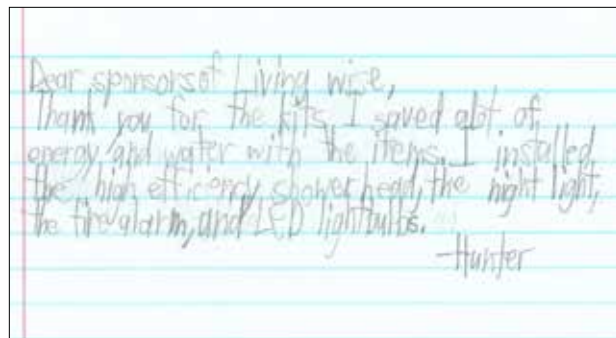 Dear sponsors of Living wise,
Thank you for the kits. I saved alot of
energy, and water with the items. I installed
the high efficiency shower head, the night light,
the fire alarm, and LED lightbulbs.
-Hunter